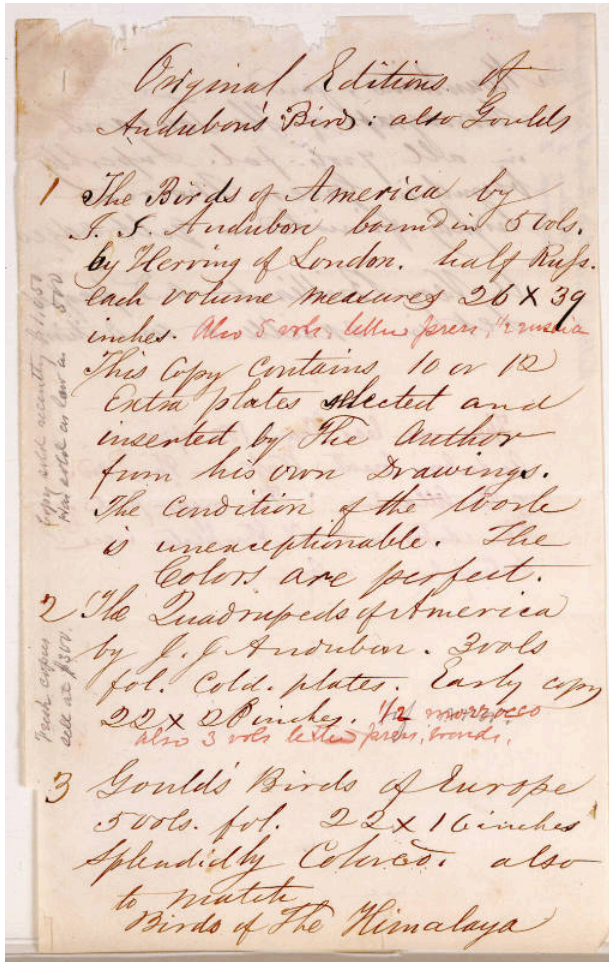 Original Editions of
Audubon's Birds: also Goulds
1 The Birds of America by
J. J. Audubon bound in 5 vols.
by Herring of London. half Russ.
each volume measures 26 X 39
inches. Also 5 vols, letter press, 1/2 russia
This Copy contains 10 or 12
Extra plates selected and
inserted by The Author
from his own Drawings.
The Condition of the Work
is unexceptionable. The
Colors are perfect.
Copy sold recently $1,050
Has sold as low as 500
2 The Quadrupeds of America
by J. J. Audubon. 3 vols
fol. Cold. plates. Early copy
22 X 28 inches. 1/2 morrocco
also 3 vols letter press, bounds.
Fresh copies
sell at $300.
3 Gould's Birds of Europe
5 vols. fol. 22 X 16 inches
Splendidly Colored. also
to match
Birds of The Himalaya